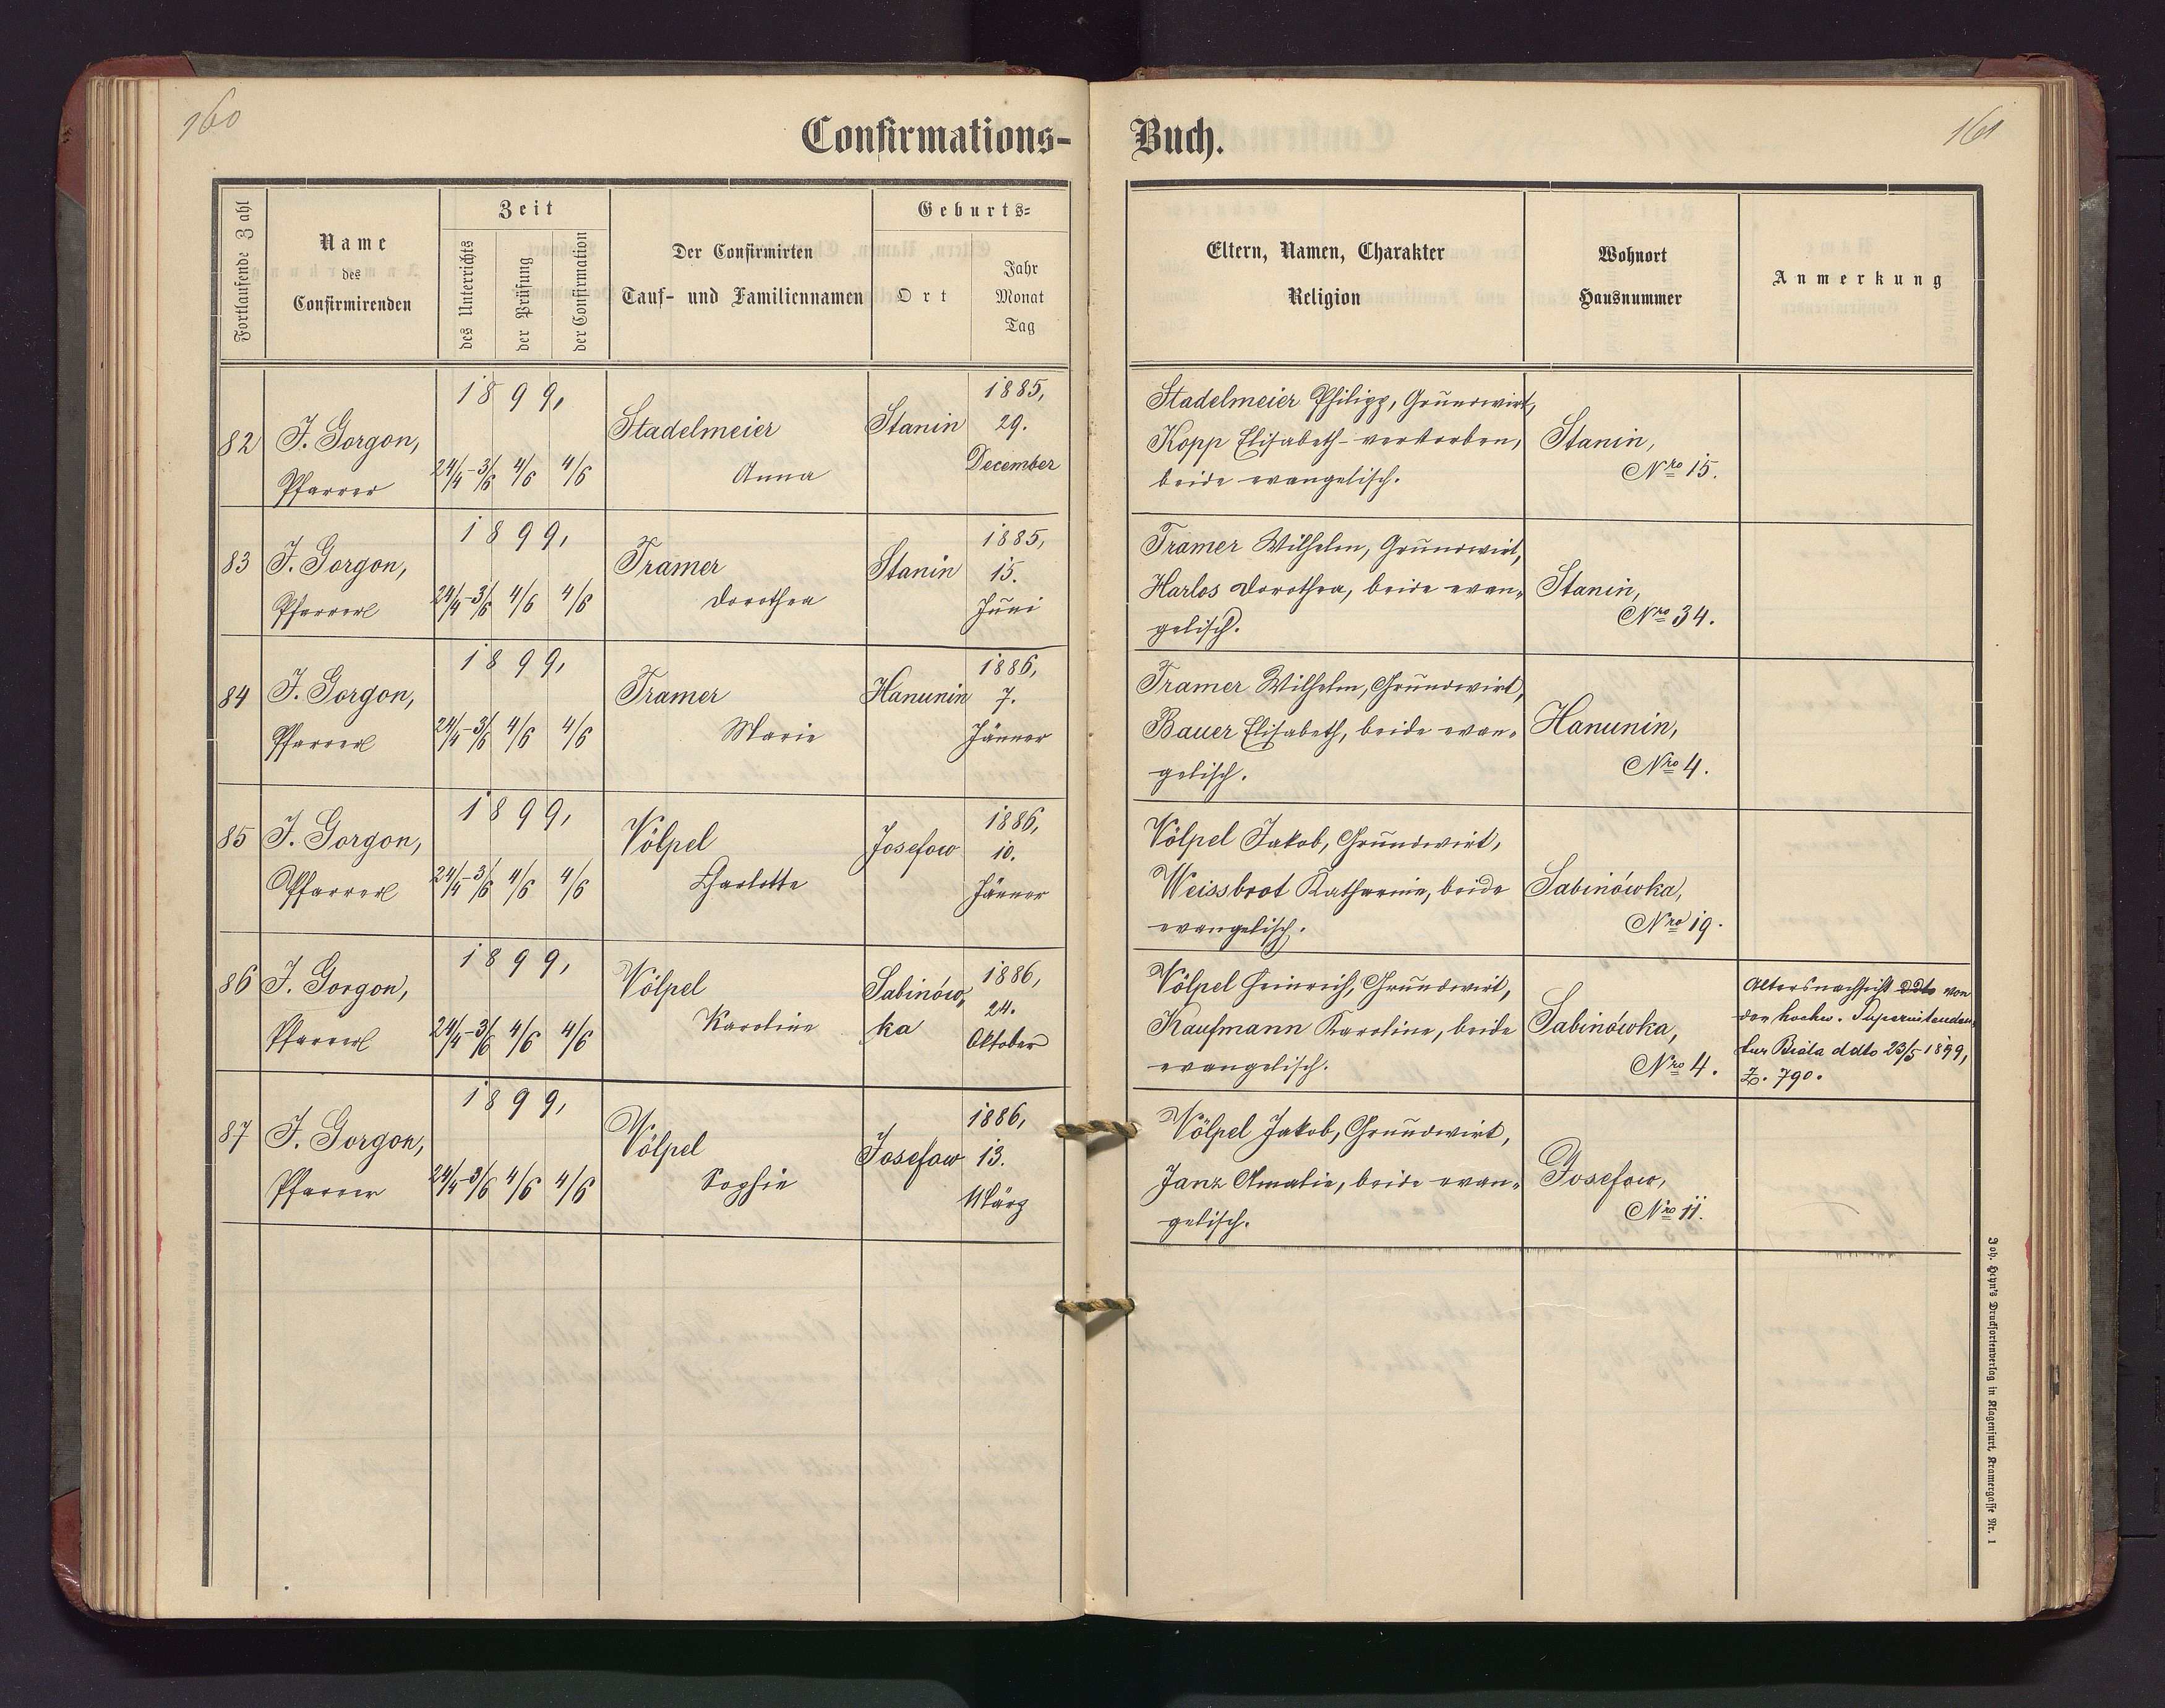 160
Confirmations-
Buch.
161
Fortlaufende Zahl
Name
des
Confirmirenden
Zeit
des Unterrichts
der Prüfung
der Confirmation
Der Confirmirten
Tauf- und Familiennamen
Geburts-
Ort
Jahr
Monat
Tag
Eltern, Namen, Charakter
Religion
Wohnort
Hausnummer
Anmerkung
82
J. Gorgon,
Pfarrer
1899,
24/4-3/6 4/6 4/6
Stadelmeier
Anna
Stanin
1885,
29.
December
Stadelmeier Philipp, Grundwirt,
Kopp Elisabeth-verstorben,
beide evangelisch.
Stanin,
Nro 15.
83
J. Gorgon,
Pfarrer
1899,
24/4-3/6 4/6 4/6
Tramer
Dorothea
Stanin
1885,
15.
Juni
Tramer Wilhelm, Grundwirt,
Harlos Dorothea, beide evan-
gelisch.
Stanin,
Nro 34.
84
J. Gorgon,
Pfarrer
1899,
24/4-3/6 4/6 4/6
Tramer
Marie
Hanunin
1886,
7.
Jänner
Tramer Wilhelm, Grundwirt,
Bauer Elisabeth, beide evan-
gelisch.
Hanunin,
Nro 4.
85
J. Gorgon,
Pfarrer
1899,
24/4-3/6 4/6 4/6
Völpel
Charlotte
Josefow
1886,
10.
Jänner
Völpel Jakob, Grundwirt,
Weissbrot Katharine, beide
evangelisch.
Sabinówka,
Nro 19.
86
J. Gorgon,
Pfarrer
1899,
24/4-3/6 4/6 4/6
Völpel
Karoline
Sabinów-
ka
1886,
24.
Oktober
Völpel Heinrich, Grundwirt,
Kaufmann Karoline, beide
evangelisch.
Sabinówka,
Nro 4.
Altersnachsicht ddto von
der hochw. Superintenden-
tur Biala ddto 23/5 1899,
Z. 790.
87
J. Gorgon,
Pfarrer
1899,
24/4-3/6 4/6 4/6
Völpel
Sophie
Josefow
1886,
13.
März
Völpel Jakob, Grundwirt,
Janz Amalie, beide evan-
gelisch.
Josefow,
Nro 11.
Joh. Heyn's Drucksortenverlag in Klagenfurt, Kramergasse Nr. 1